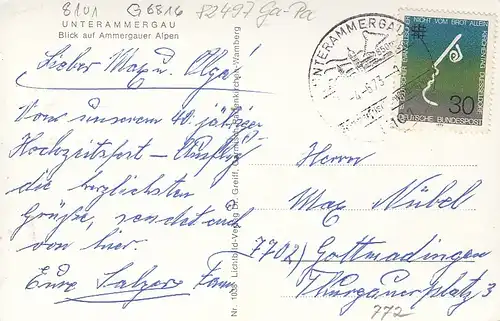 8101 G 6816 82497 Ga-Pa
UNTERAMMERGAU
Blick auf Ammergauer Alpen
Lieber Max u. Olga!
Vom unserem 40. jährigen
Hochzeitsfest – Ausflug
die herzlichsten
Grüße, sendet euch
von hier.
Eure Salzers Fam
Nr. Lichtbild-Verlag Dr. Greiff, Garmisch-Partenkirchen, Wamberg
UNTERAMMERGAU
850m
NICHT VOM BROT ALLEIN
30
DEUTSCHE BUNDESPOST
Herrn
Max Nübel
7702) Gottmadingen
Thurgauerplatz 3
772